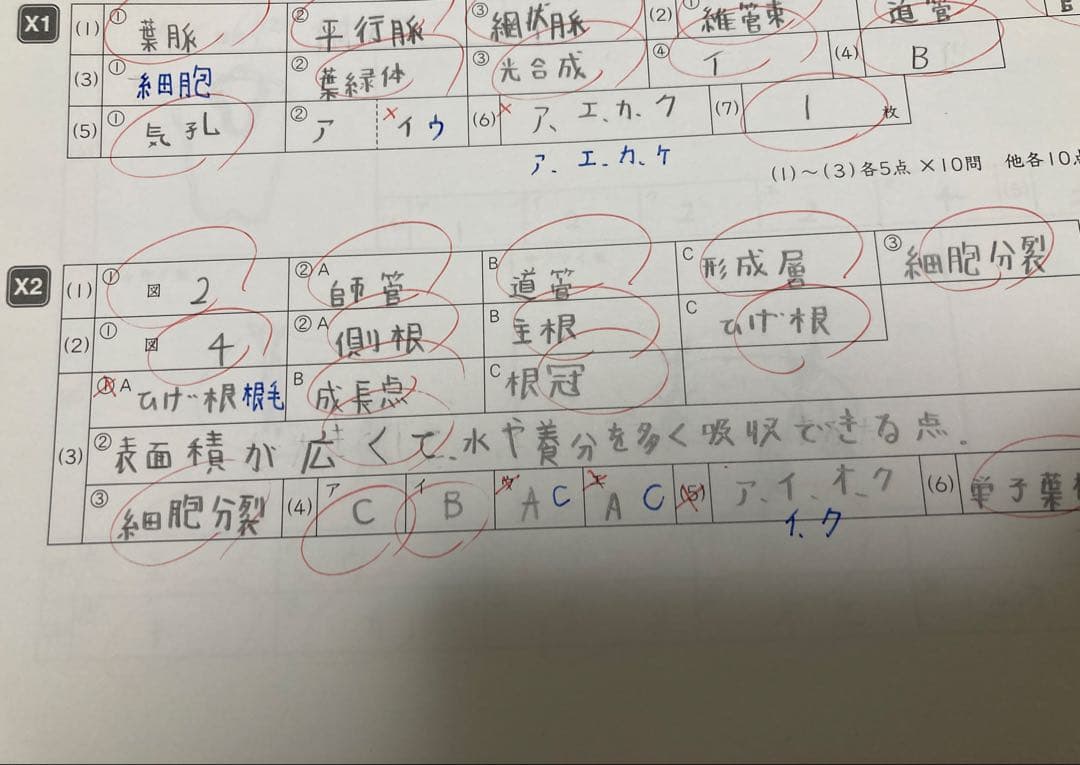 X1 (1) ① 葉脈 ② 平行脈 ③ 網状脈 (2) ① 維管束 道管
(3) ① 細胞 ② 葉緑体 ③ 光合成 ④ イ (4) B
(5) ① 気孔 ② ア イ ウ (6) ア、エ、カ、ク (7) 1 枚
ア、エ、カ、ケ
(1)～(3)各5点×10問 他各10点
X2 (1) ① 図 2 ② A 師管 B 道管 C 形成層 ③ 細胞分裂
(2) ① 図 4 ② A 側根 B 主根 C ひげ根
(3) ① A ひげ根 根毛 B 成長点 C 根冠
② 表面積が広くて、水や養分を多く吸収できる点。
③ 細胞分裂 (4) ア C イ B ウ A C エ A C (5) ア、イ、オ、ク (6) 単子葉
イ、ク